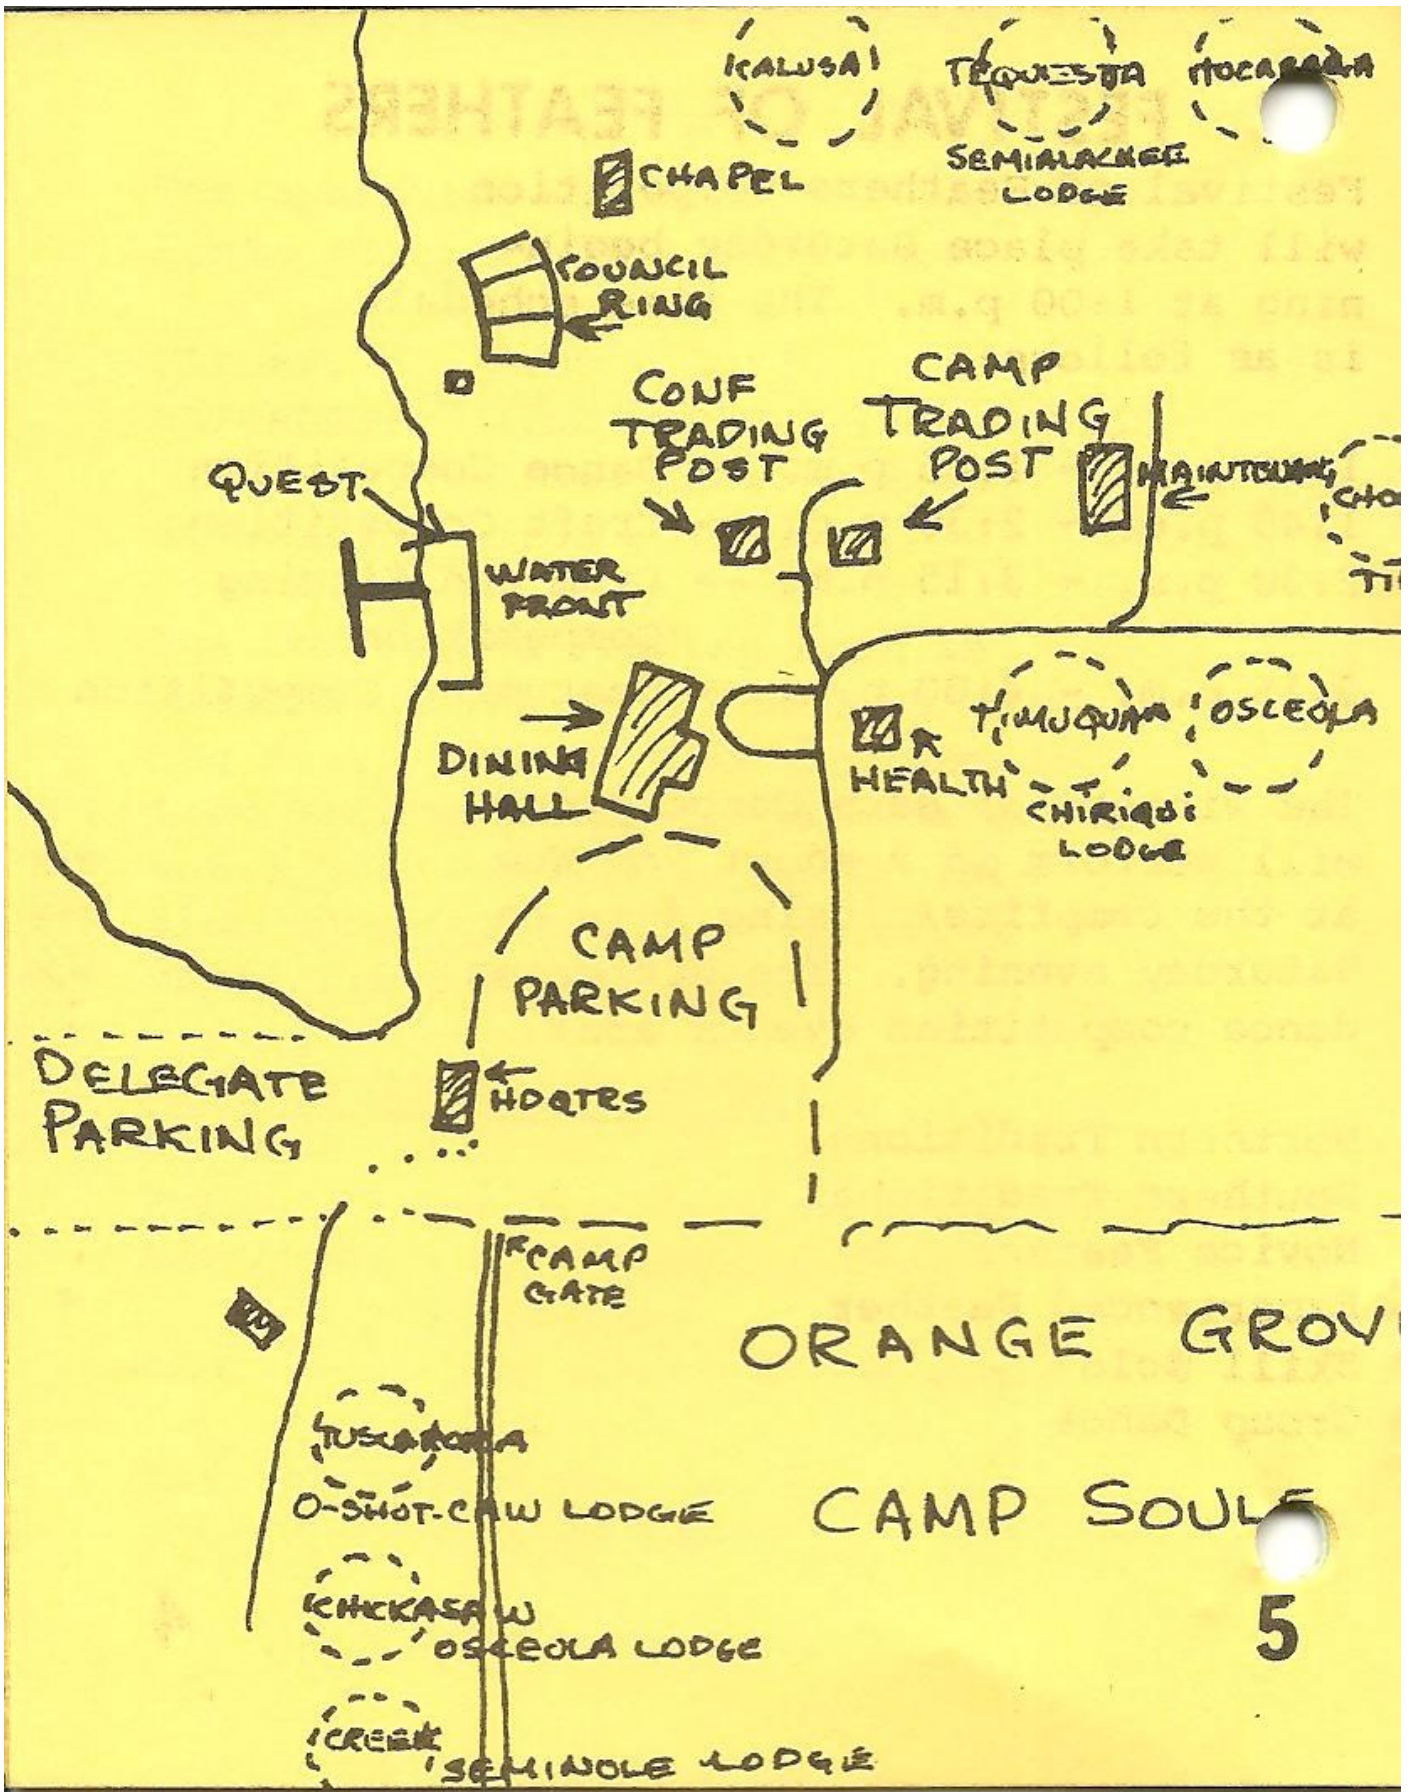 KALUSA
TEQUESTA
SEMIALACHEE
LODGE
CHAPEL
COUNCIL
RING
CONF
TRADING
POST
CAMP
TRADING
POST
QUEST
WATER
FRONT
DINING
HALL
HEALTH
TIMUQUAN
OSCEOLA
CHIRIQUI
LODGE
CAMP
PARKING
DELEGATE
PARKING
HDQTRS
CAMP
GATE
ORANGE GROV
CAMP SOULE
TUSCARORA
O-SHOT-CAW LODGE
CHICKASAW
OSCEOLA LODGE
CREEK
SEMINOLE LODGE
5